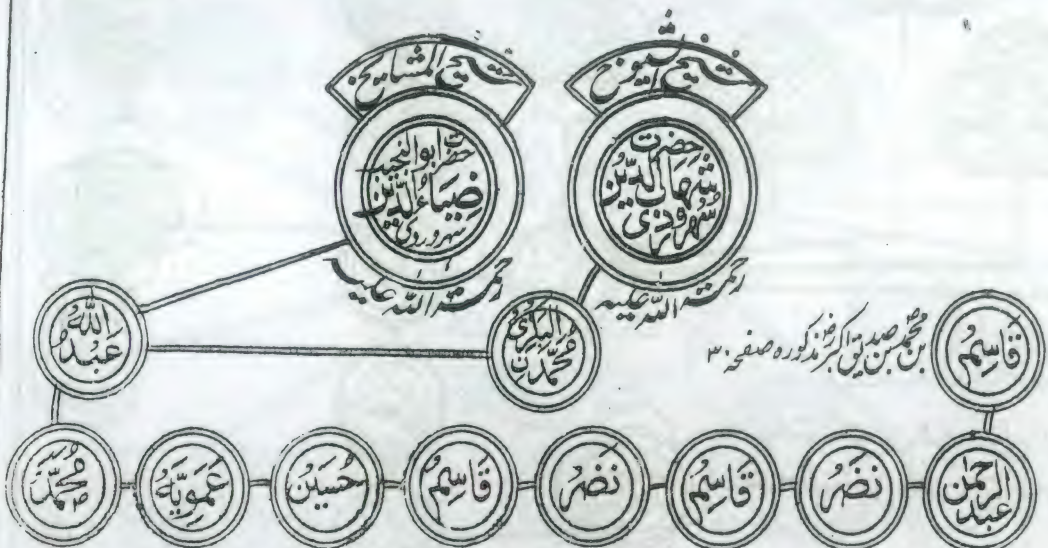 شیخ الشیوخ
حضرت
شہاب الدین
سہروردی
رحمتہ اللہ علیہ
شیخ المشایخ
حضرت ابو النجیب
ضیاء الدین
سہروردی
رحمتہ اللہ علیہ
قاسم
بن محمد بن صدیق اکبرؓ مذکورہ صفحہ ۳۰
محمدن البکری
عبد اللہ
عبد الرحمن
نضر
قاسم
نضر
قاسم
حسین
عمویہ
محمد